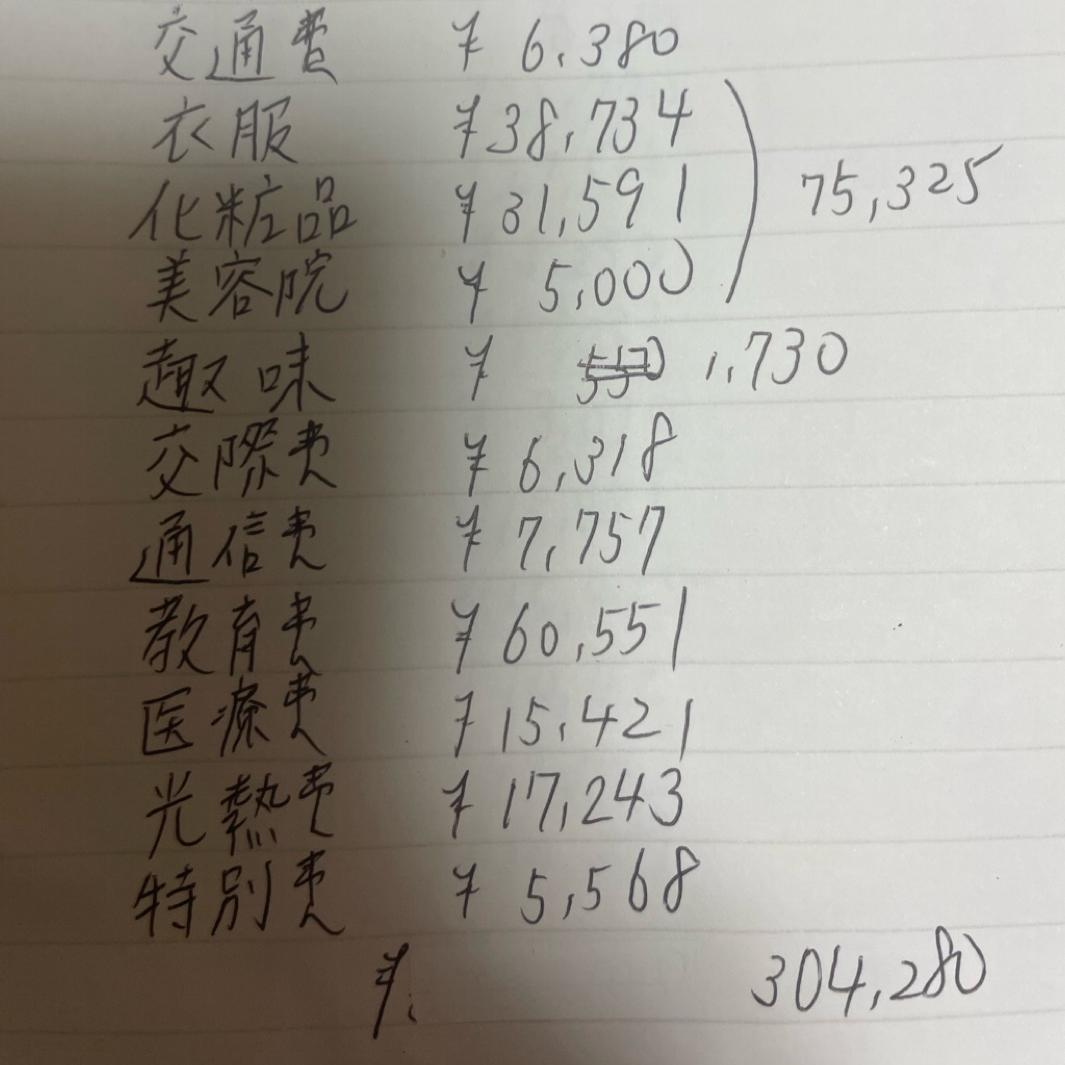 交通費 ¥ 6,380
衣服 ¥38,734
化粧品 ¥31,591 75,325
美容院 ¥ 5,000
趣味 ¥ 1,730
交際費 ¥ 6,318
通信費 ¥ 7,757
教育費 ¥60,551
医療費 ¥15,421
光熱費 ¥17,243
特別費 ¥ 5,568
¥. 304,280